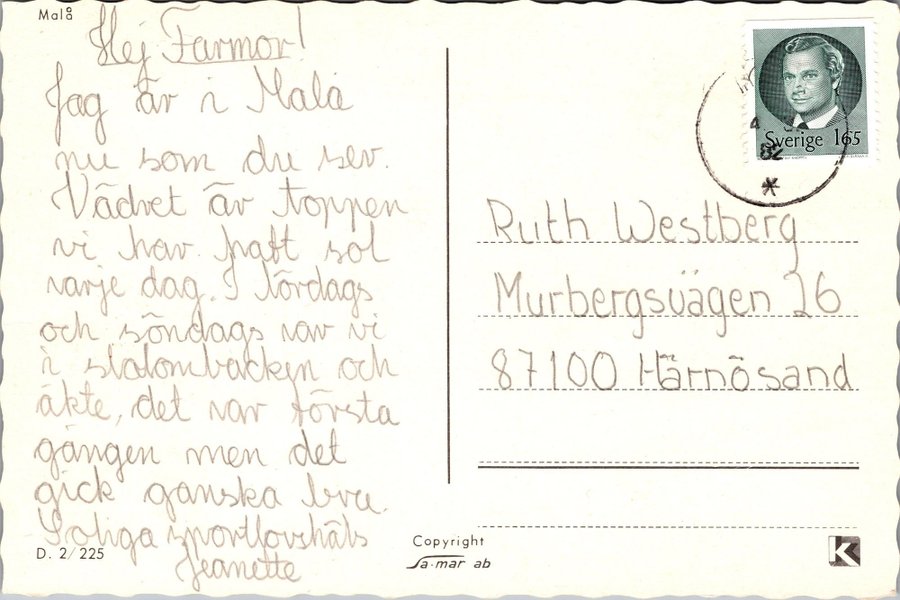 Malå
Hej Farmor!
Jag är i Malå
nu som du ser.
Vädret är toppen
vi har haft sol
varje dag. I lördags
och söndags var vi
i slalombacken och
åkte, det var första
gången men det
gick ganska bra.
Soliga sportlovshäls
Jeanette
D. 2/225
Copyright
Sa-mar ab
Sverige 165
82
*
Ruth Westberg
Murbergsvägen 26
87100 Härnösand
K